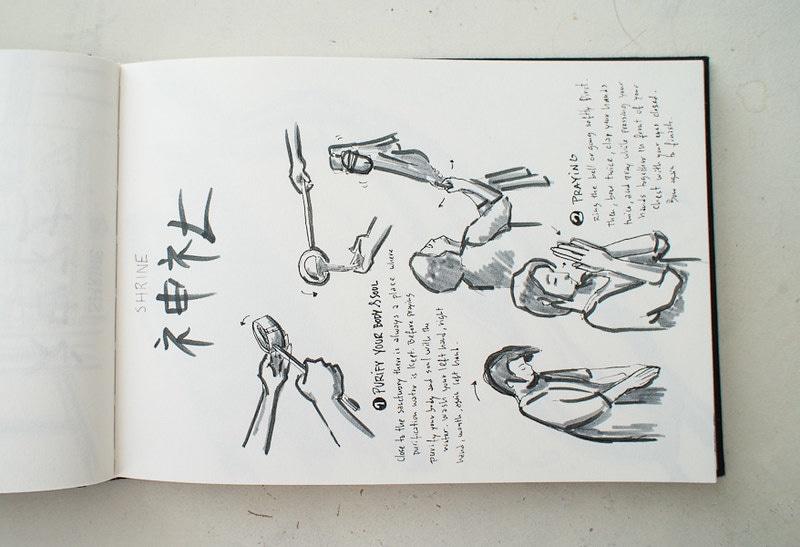 SHRINE
神社
1 PURIFY YOUR BODY & SOUL
Close to the sanctuary there is always a place where
purification water is kept. Before praying
purify your body and soul with the
water. Wash your left hand, right
hand, mouth, again left hand.
2 PRAYING
Ring the bell or gong softly first.
Then, bow twice, clap your hands
twice, and pray while pressing your
hands together in front of your
chest with your eyes closed.
Bow again to finish.